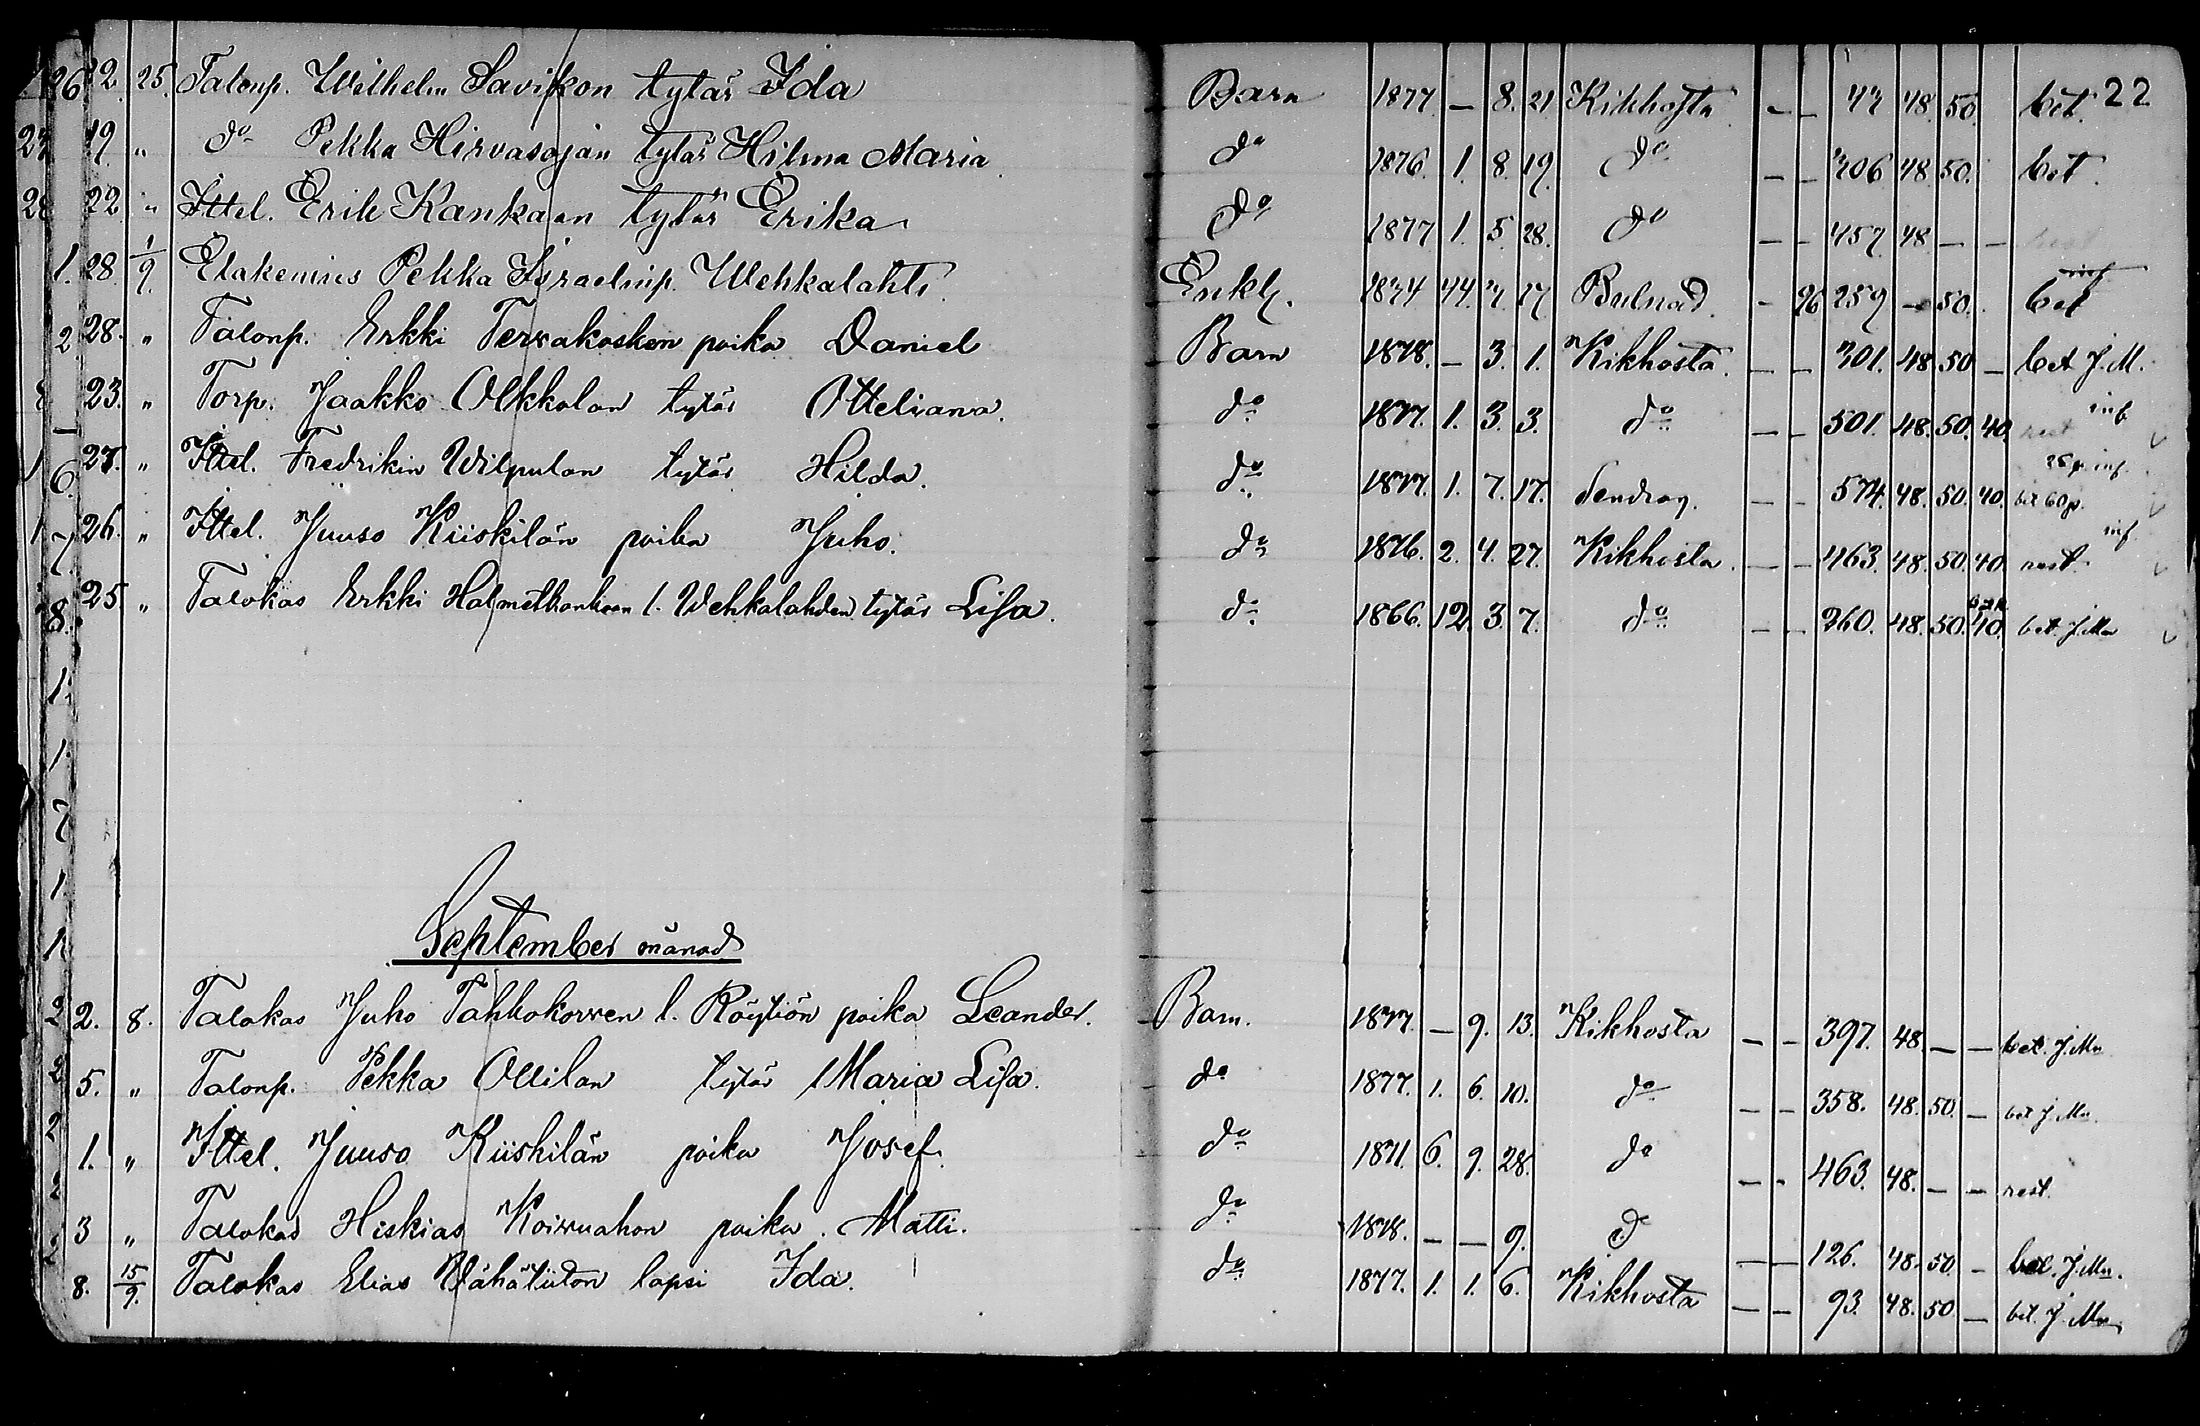 22. 25. Talonp. Wilhelm Savikon tytär Ida Barn 1877 — 8. 21 Kikhosta — — 47 48 50. bet. 22
19. " do Pekka Hirvasojan tytär Hilma Maria do 1876. 1. 8. 19. do — — 406 48. 50. bet.
22 " Ittel. Erik Kankaan tytär Erika do 1877 1. 5. 28. do — — 457 48 — — rest
28. 1/9. Elakemies Pekka Israelinp. Wehkalahti. Enkl. 1834 44. 7. 17 — 26 259 — 50. bet
28. " Talonp. Erkki Tervakosken poika Daniel Barn 1878. — 3. 1. Kikhosta. — — 301. 48 50 — bet J. M.
23. " Torp. Jaakko Olkkolan tytär Otteliana. do 1877. 1. 3. 3. do — — 501. 48. 50. 40. rest inf
27. " Ittel. Fredrikin Wilpulan tytär Hilda. do 1877. 1. 7. 17. — — 574. 48. 50. 40. bet 60 p. 25 p. inf.
26. " Ittel. Juuso Kiiskilän poika Juho. do 1876. 2. 4. 27. Kikhosta. — — 463. 48. 50. 40. rest inf
25 " Talokas Erkki l. Wehkalahden tytär Lisa. do 1866. 12. 3. 7. do — — 260. 48. 50. 40. bet. J. Mn
September månad
2. 8. Talokas Juho Tahkokorven l. Röytiön poika Leander. Barn. 1877. — 9. 13. Kikhosta — — 397. 48. — — bet. J. Mn
5. " Talonp. Pekka Ollilan tytär Maria Lisa. do 1877. 1. 6. 10. do — — 358. 48. 50. — bet J. Mn.
1. " Ittel. Juuso Kiiskilän poika Josef. do 1871. 6. 9. 28. do — — 463. 48. — — rest.
3 " Talokas Hiskias Koivuahon poika. Matti. do 1878. — — 9. d — — 126. 48. 50. — bet. J. Mn.
8. 15/9. Talokas Elias Vähätiiton lapsi Ida. do 1877. 1. 1. 6. Kikhosta — — 93. 48. 50. — bet. J. Mn